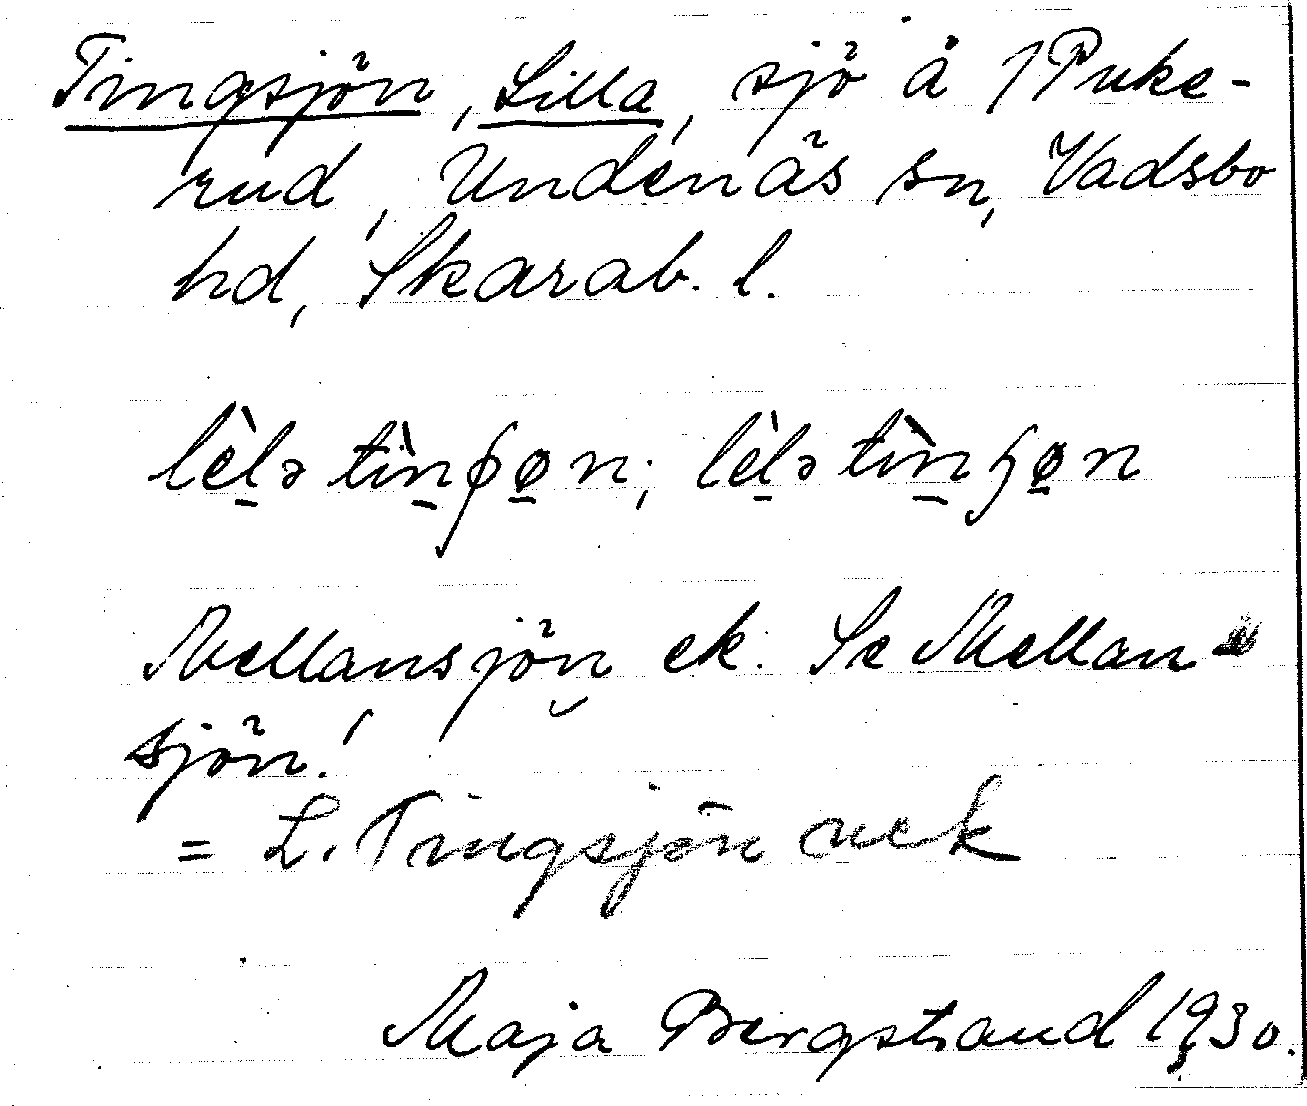 Tingsjön, Lilla, sjö å 1 Puke-
rud, Undenäs sn, Vadsbo
hd, Skarab. l.
Mellansjön ek. Se Mellan-
sjön!
= L. Tingsjön
Maja Bergstrand 1930.